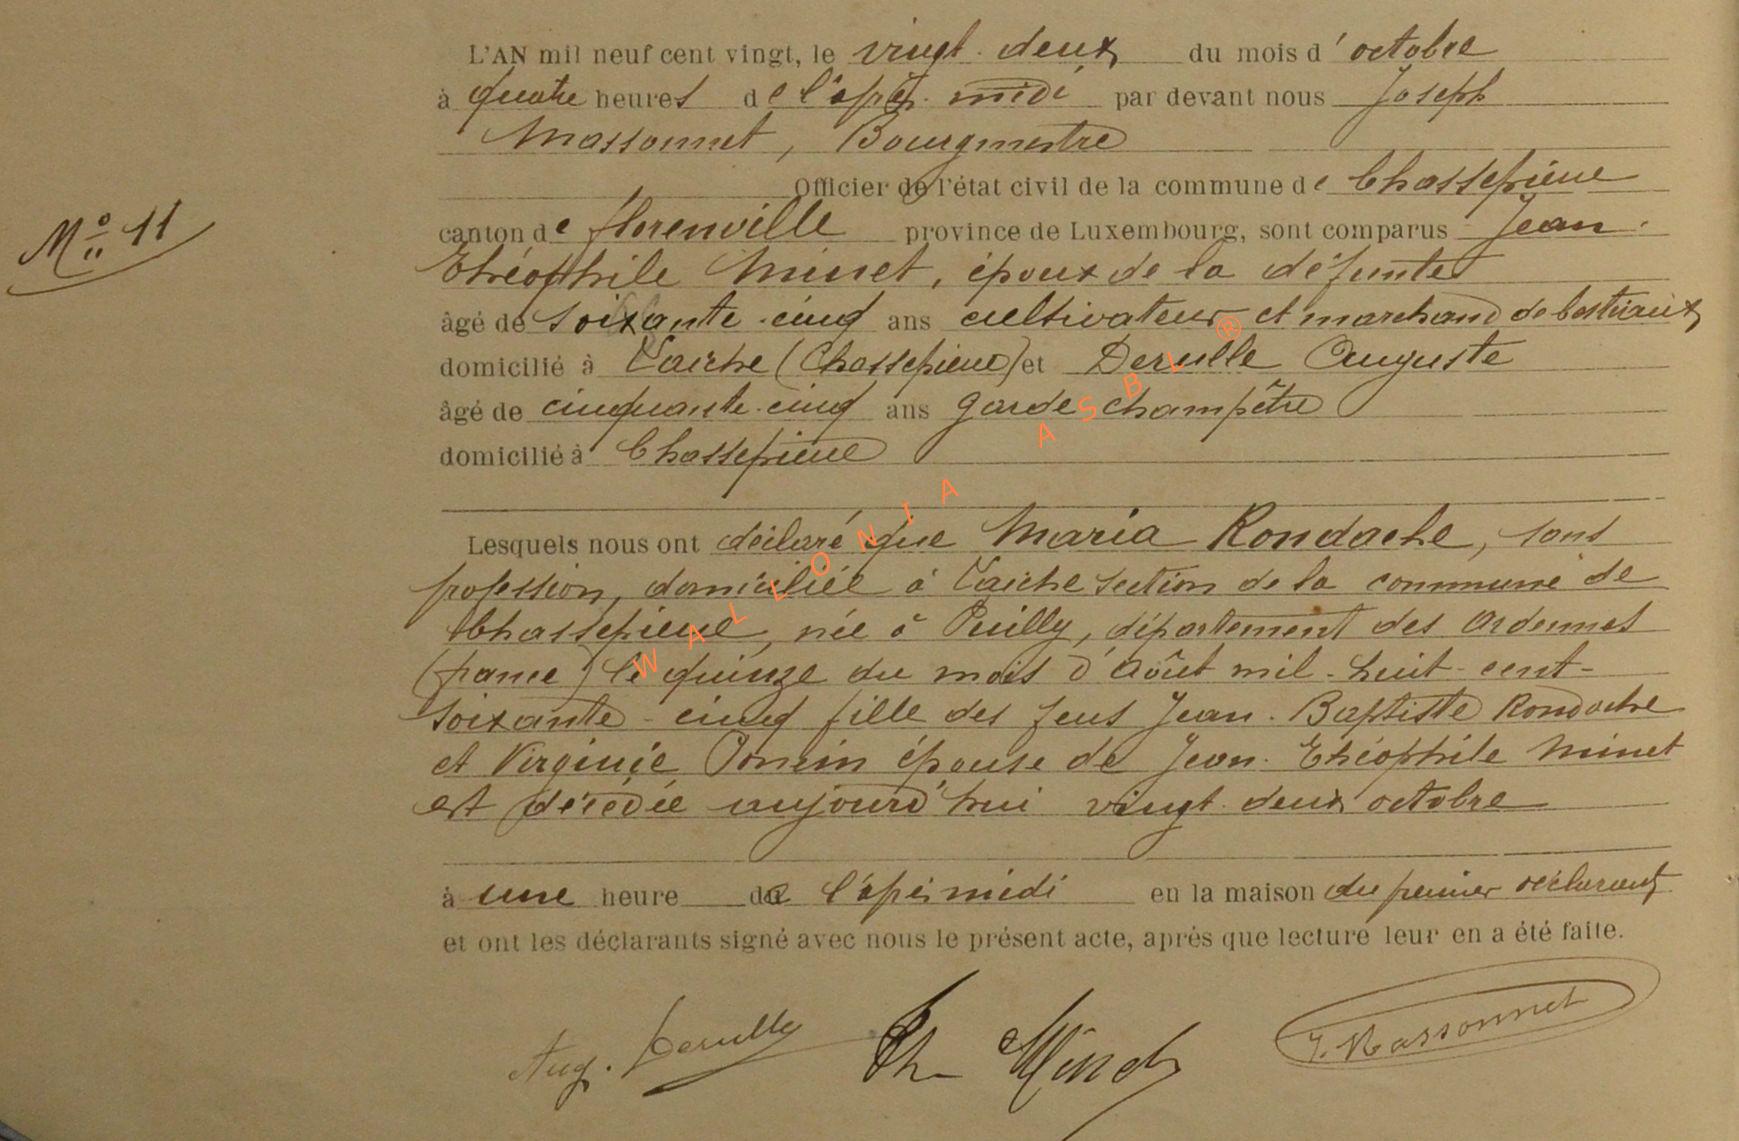 L'AN mil neuf cent vingt, le vingt-deux du mois d'octobre
à quatre heures de l'après-midi par devant nous Joseph
Massonnet, Bourgmestre
Officier de l'état civil de la commune de Chassepierre
N° 11
canton de Florenville province de Luxembourg, sont comparus Jean-
Théophile Minet, époux de la défunte
âgé de soixante-cinq ans cultivateur et marchand de bestiaux
domicilié à Laiche (Chassepierre) et Derulle Auguste
âgé de cinquante-cinq ans garde champêtre
domicilié à Chassepierre
Lesquels nous ont déclaré que Maria Rondache, sans
profession, domiciliée à Laiche section de la commune de
Chassepierre, née à Puilly, département des Ardennes
(france) le quinze du mois d'Août mil-huit-cent-
soixante-cinq fille des feus Jean-Baptiste Rondache
et Virginie Ponsin épouse de Jean-Théophile Minet
est décédée aujourd'hui vingt-deux octobre
à une heure de l'après midi en la maison du premier déclarant
et ont les déclarants signé avec nous le présent acte, après que lecture leur en a été faite.
Aug. Derulle Th Minet J. Massonnet
WALLONIA ASBL ®